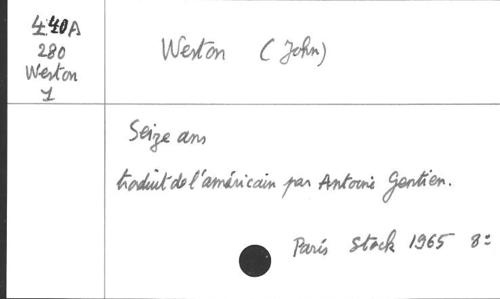 440A
280
Weston
1
Weston (John)
Seize ans
traduit de l'américain par Antoine Gentien.
Paris Stock 1965 8º